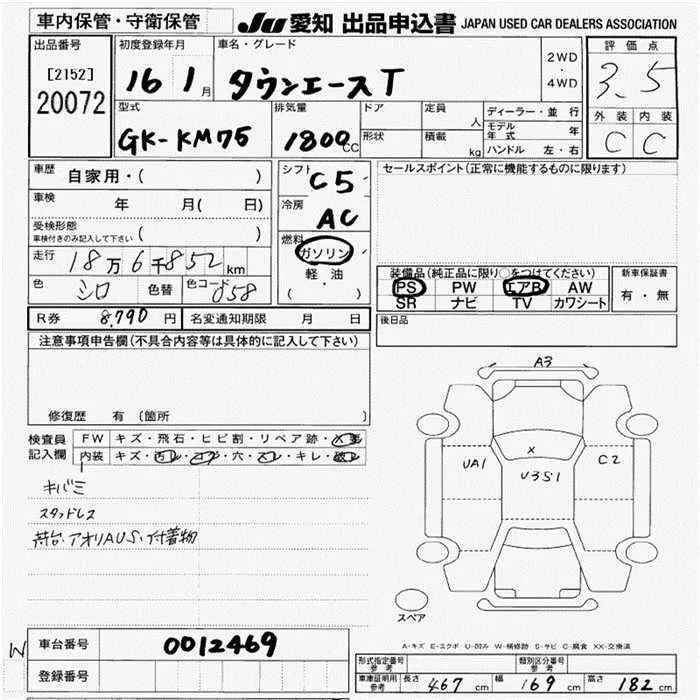 車内保管・守衛保管
JU 愛知 出品申込書 JAPAN USED CAR DEALERS ASSOCIATION
出品番号
[2152]
20072
初度登録年月
16 1 月
車名・グレード
タウンエースT
2WD
・
4WD
評価点
3.5
外装 内装
C C
型式
GK-KM75
排気量
1800 CC
ドア
形状
定員 人
積載 kg
ディーラー・並行
モデル年式 年
ハンドル 左・右
車歴 自家用・( )
車検 年 月( 日)
受検形態
車検付きのみ記入して下さい ( )
走行 18万6千852km
色 シロ 色替 色コード 058
シフト C5
冷房 AC
燃料 ガソリン
・
軽油
( ・ )
セールスポイント(正常に機能するものに限ります)
装備品(純正品に限り○をつけてください)
PS PW エアB AW
SR ナビ TV カワシート
新車保証書
有・無
R券 8,790 円 名変通知期限 月 日
後日品
注意事項申告欄(不具合内容等は具体的に記入して下さい)
修復歴 有 (箇所 )
検査員記入欄
FW キズ・飛石・ヒビ割・リペア跡・
内装 キズ・汚レ・コゲ・穴・スレ・キレ・破レ
キバミ
スタッドレス
荷台・アオリAUS・付着物
A3
UA1
X
U3S1
C2
スペア
A-キズ E-エクボ U-凹み W-補修跡 S-サビ C-腐食 XX-交換済
W
車台番号 0012469
登録番号
形式指定番号 参考
類別区分番号 参考
車庫証明用 参考 長さ 467 cm 幅 169 cm 高さ 182 cm